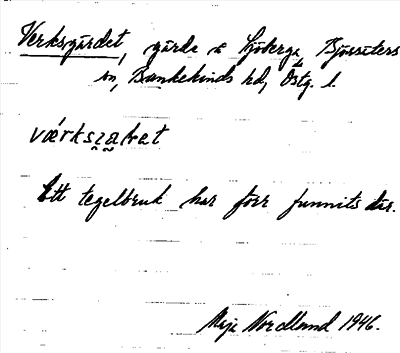 Verksgärdet, gärde å Sjöberga Bjärsäters
sn, Bankekinds hd, Östg. l.
Ett tegelbruk har förr funnits där.
Nordlund 1946.